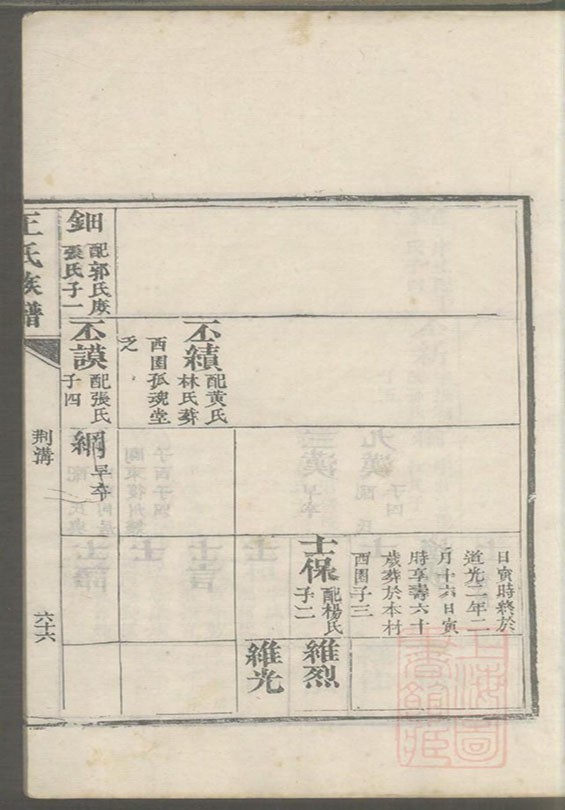 日寅時終於
道光二年二
月十六日寅
時享壽六十
歲葬於本村
西園子三
士保
配楊氏
子二
維烈
維光
丕績
配黃氏
林氏葬
西園孤魂堂
乏
鈿
配郭氏庶
張氏子一
丕謨
配張氏
子四
綱
早卒
王氏族譜
荆溝
六十六
上海圖
書館藏